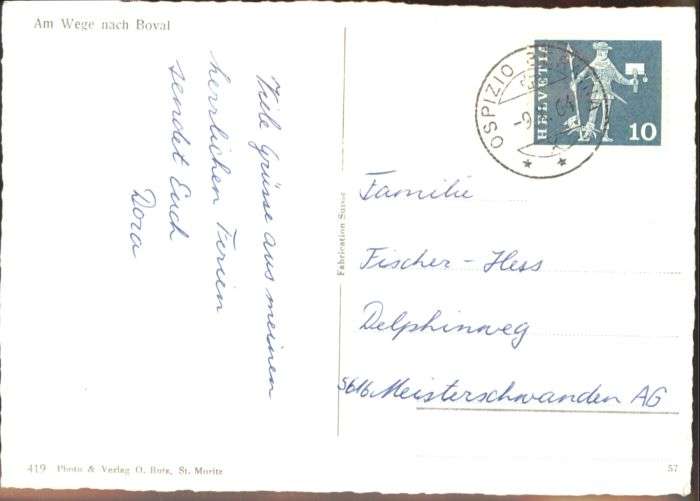 Am Wege nach Boval
Viele Grüsse aus meinen
herrlichen Ferien
sendet Euch
Dora
Fabrication Suisse
OSPIZIO
-9
64
HELVETIA
10
Familie
Fischer-Hess
Delphinweg
5616 Meisterschwanden AG
419 Photo & Verlag O. Rutz, St. Moritz
57